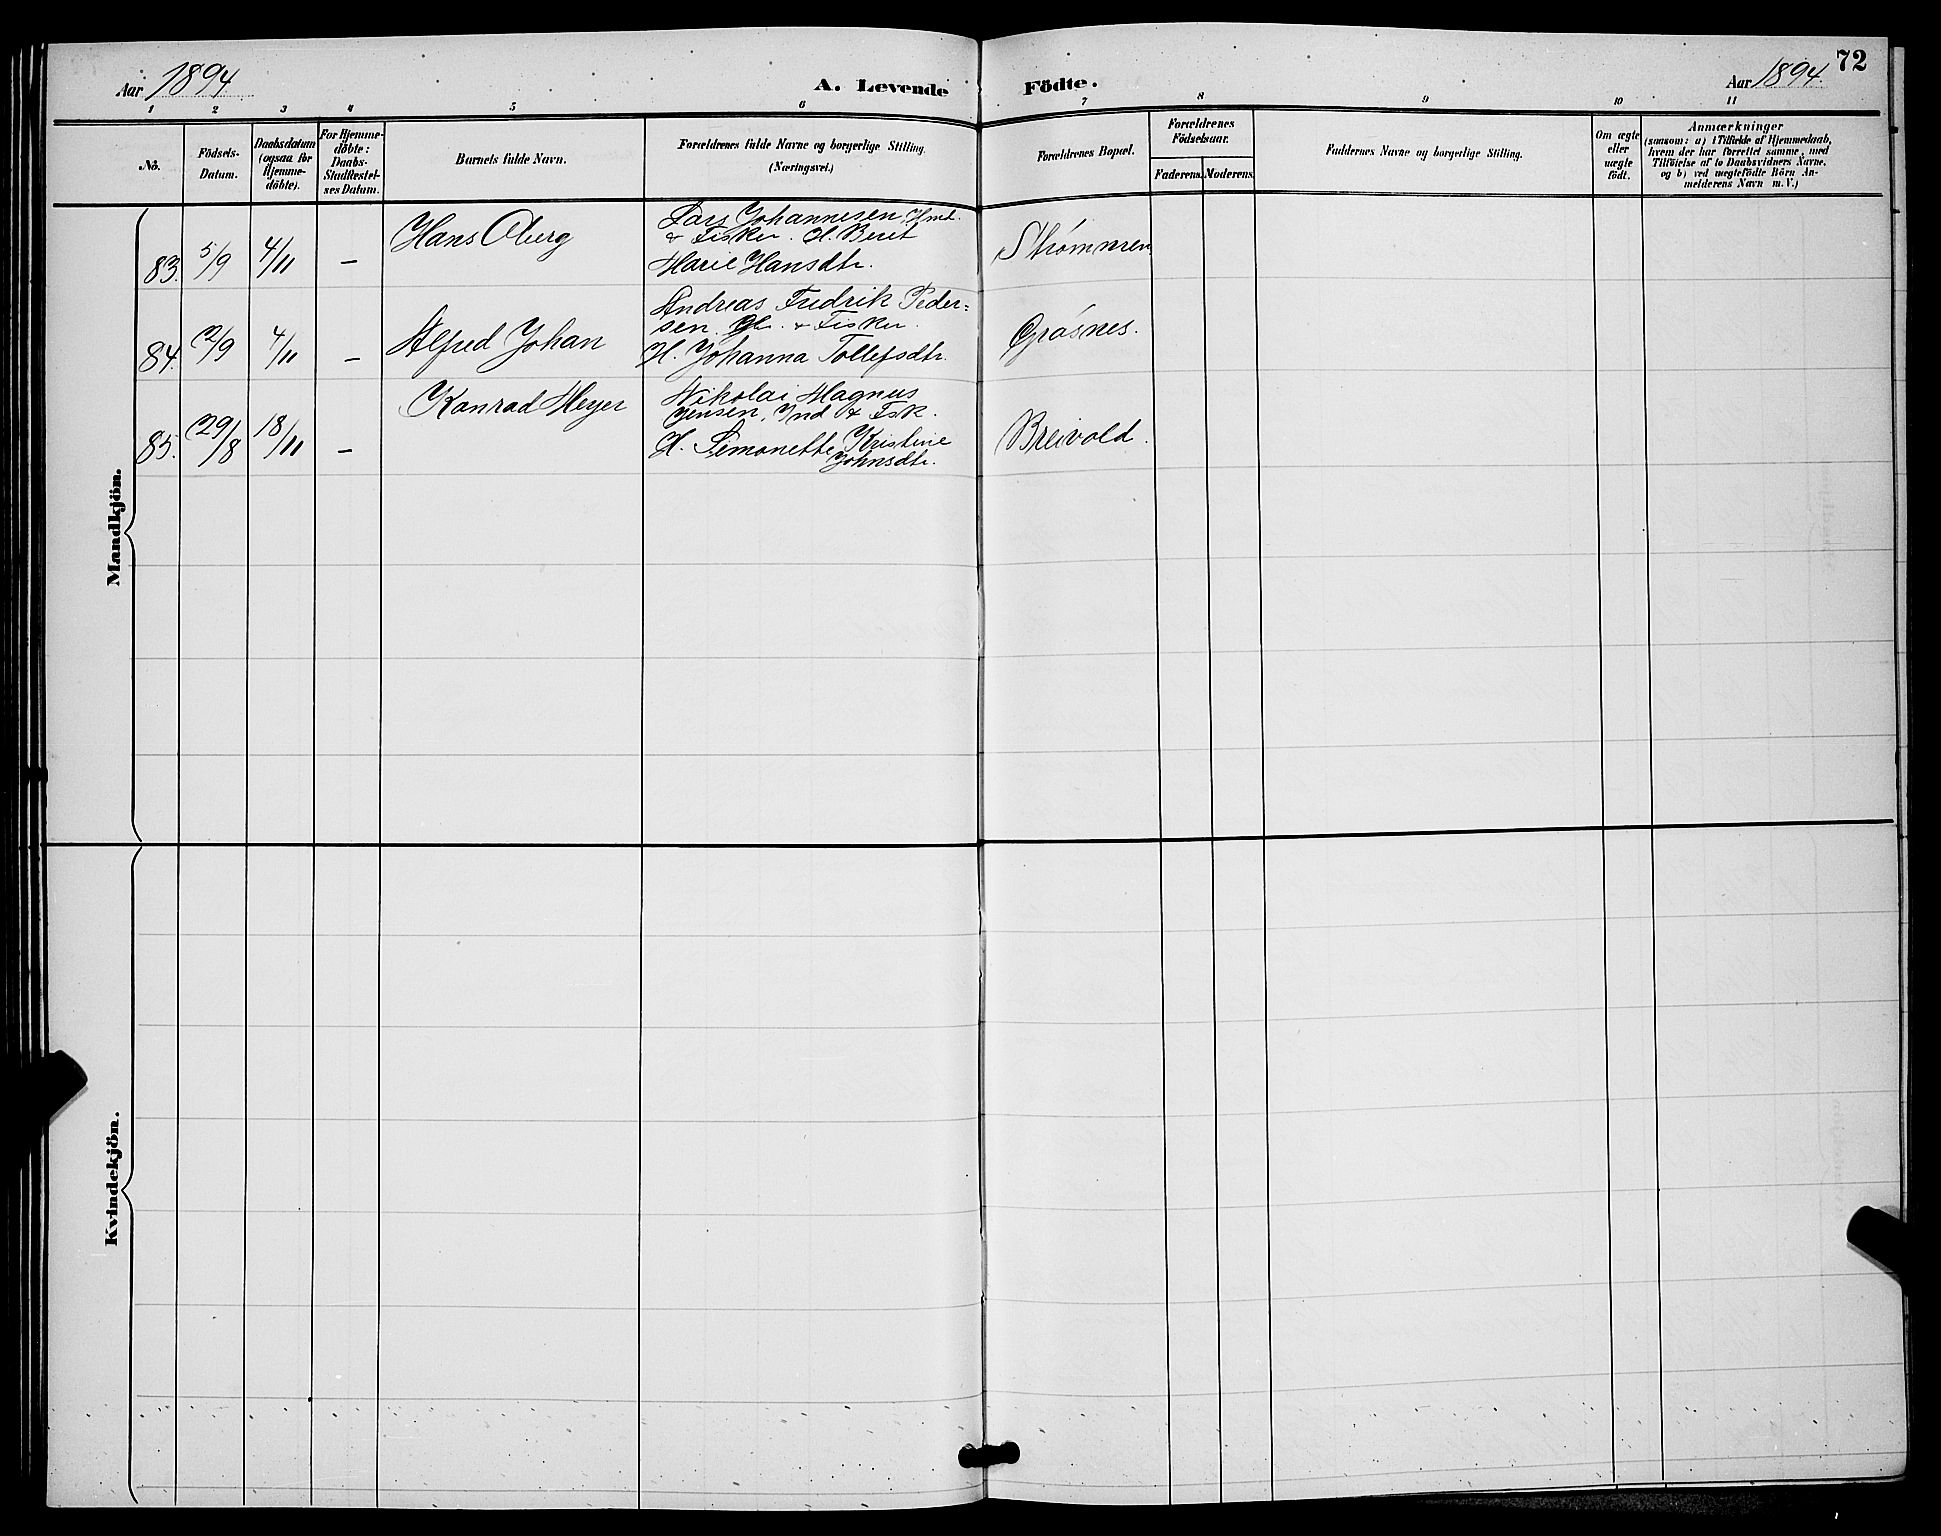 72
Aar 1894
A. Levende Födte.
Aar 1894.
1 2 3 4 5 6 7 8 9 10 11
No.
Födsels-
Datum.
Daabsdatum
(ogsaa for
Hjemme-
döbte).
For Hjemme-
döbte:
Daabs-
Stadfæstel-
ses Datum.
Barnets fulde Navn.
Forældrenes fulde Navne og borgerlige Stilling.
(Næringsvei.)
Forældrenes Bopæl.
Forældrenes
Födselsaar.
Faderens. Moderens.
Faddernes Navne og borgerlige Stilling.
Om ægte
eller
uægte
födt.
Anmærkninger
(saasom: a) i Tilfælde af Hjemmedaab,
hvem der har forrettet samme, med
Tilföielse af to Daabsvidners Navne,
og b) ved uægtefödte Börn An-
melderens Navn m. V.)
Mandkjön.
83. 5/9 4/11 –
Hans Oberg
Lars Johannesen, Ind.
& Fisker. H. Beret
Marie Hansdtr.
Strømmen
84. 2/9 4/11 –
Alfred Johan
Andreas Fredrik Peder=
sen. & Fisker.
H. Johanna Tollefsdtr.
Grøsnes.
85. 29/8 18/11 –
Konrad Meyer
Nikolai Magnus
Jensen, Ind & Fsk.
H. Simonette Kristine
Johnsdtr.
Breivold.
Kvindekjön.